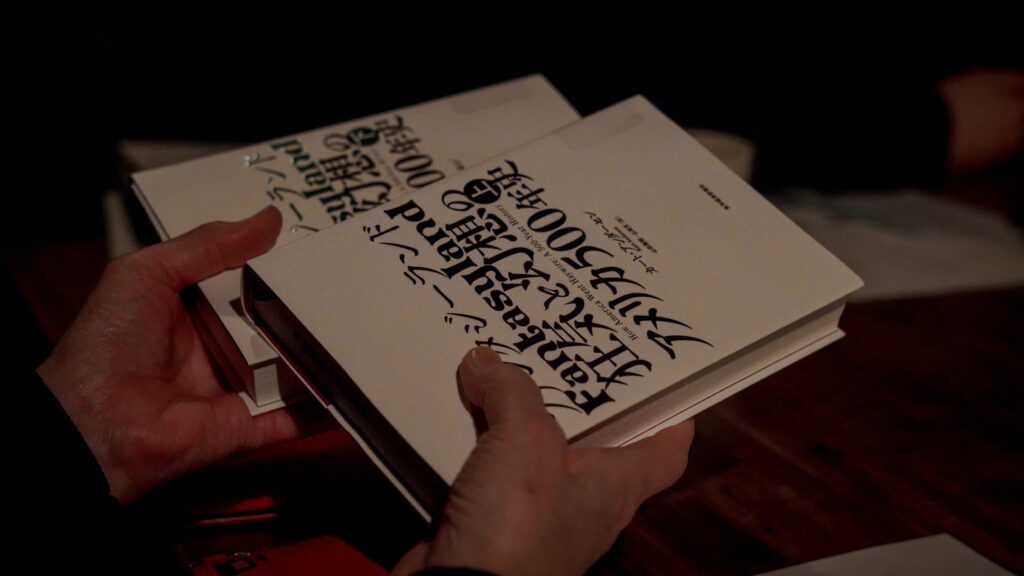 ジーランド
Fantasyland
狂気と幻想の 上
How America Went Haywire: A 500-Year History
アメリカ500年史
カート・アンダーセン
ーランド
syland
幻想の 下
00年史